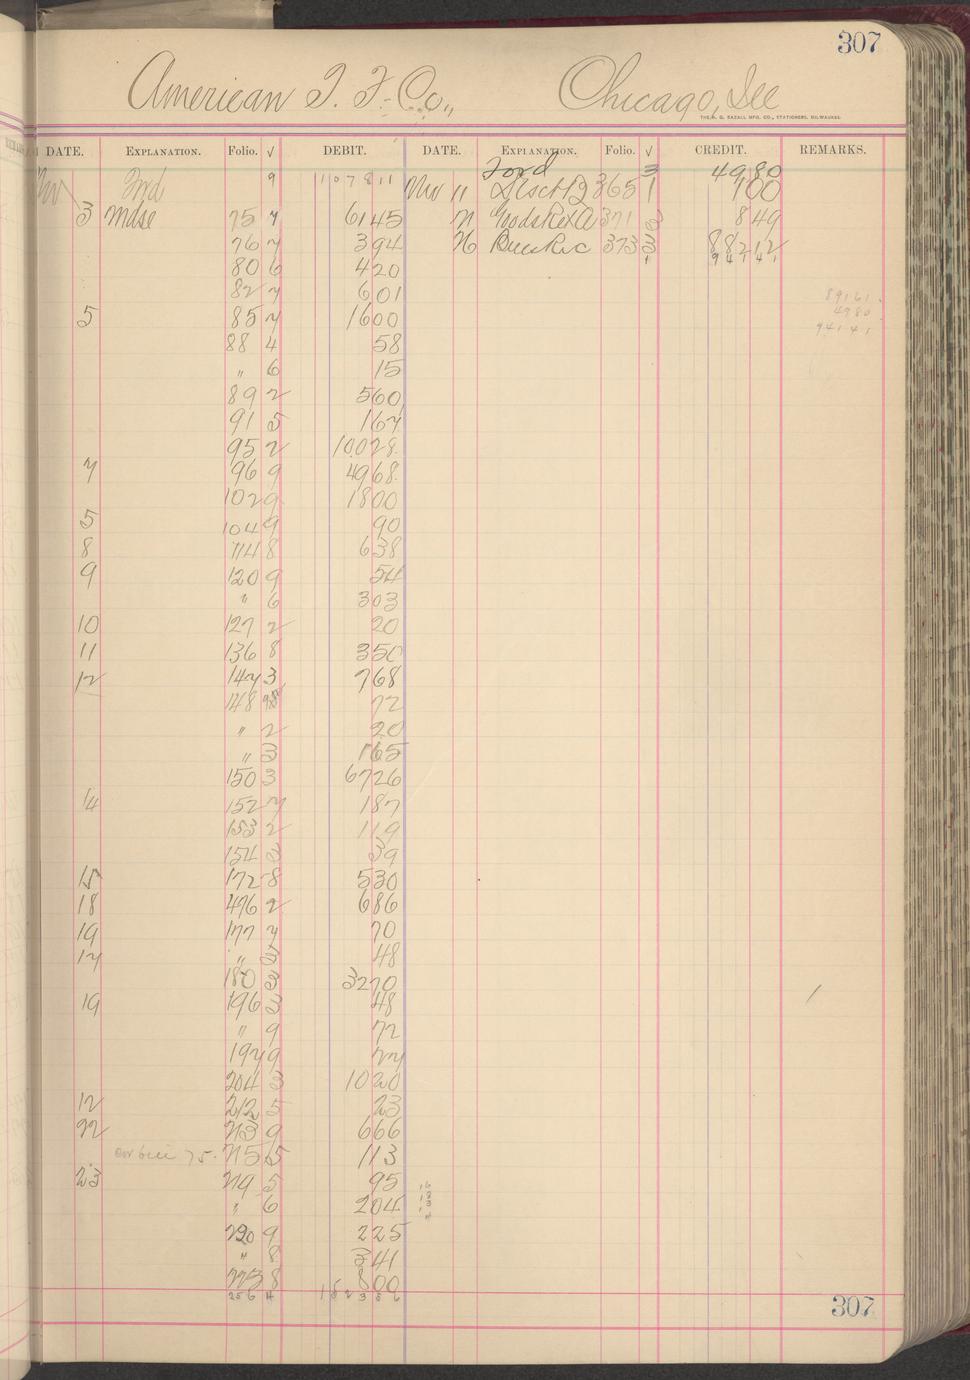 307
American T. F. Co., Chicago, Ill
THE H. G. RAZALL MFG. CO., STATIONERS, MILWAUKEE
DATE. EXPLANATION. Folio. √ DEBIT. DATE. EXPLANATION. Folio. √ CREDIT. REMARKS.
Ford 3 4980
Nov Ford 9 1107811 Nov 11 365 1 100
3 Mdse 75 7 6145 21 371 3 849
76 7 394 26 373 3 88212
80 6 420 94141
82 7 601 89161
5 85 7 1600 4980
88 4 58 94141
" 6 15
89 2 560
91 5 167
95 2 10028
7 96 9 4968
102 9 1800
5 104 9 90
8 114 8 638
9 120 9 54
" 6 303
10 127 2 20
11 136 8 350
12 147 3 768
148 72
" 2 20
" 3 165
150 3 6726
14 152 7 187
153 2 119
154 3 39
15 172 8 530
18 476 2 686
19 177 7 70
17 " 3 48
180 3 3270
19 196 3 48
" 9 72
197 9 27
204 3 1020
12 212 5 23
22 213 9 666
75. 215 5 113
23 219 5 95
" 6 204
220 9 225
" 8 341
223 8 800
256 4
307